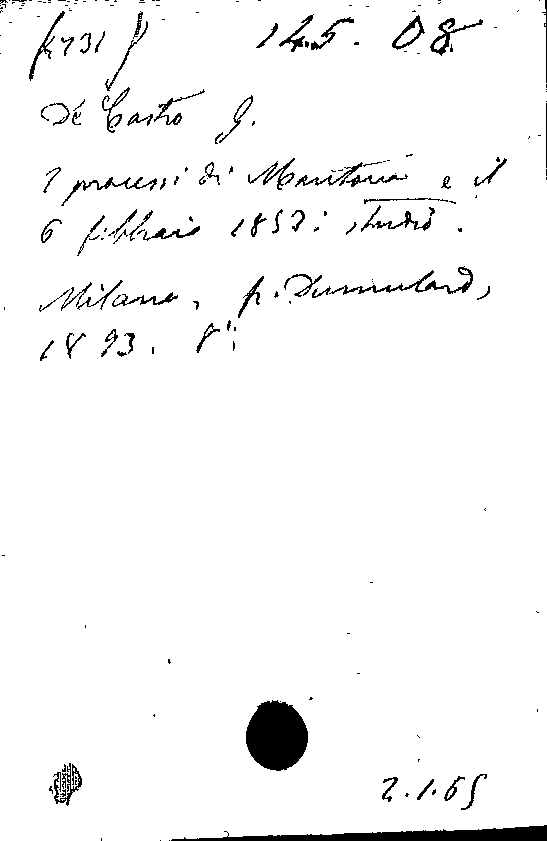 (4731) 145.08
De Castro G.
I processi di Mantova e il
6 febbraio 1853: studio.
Milano, f. Dumolard,
1893. 8°.
2.1.65